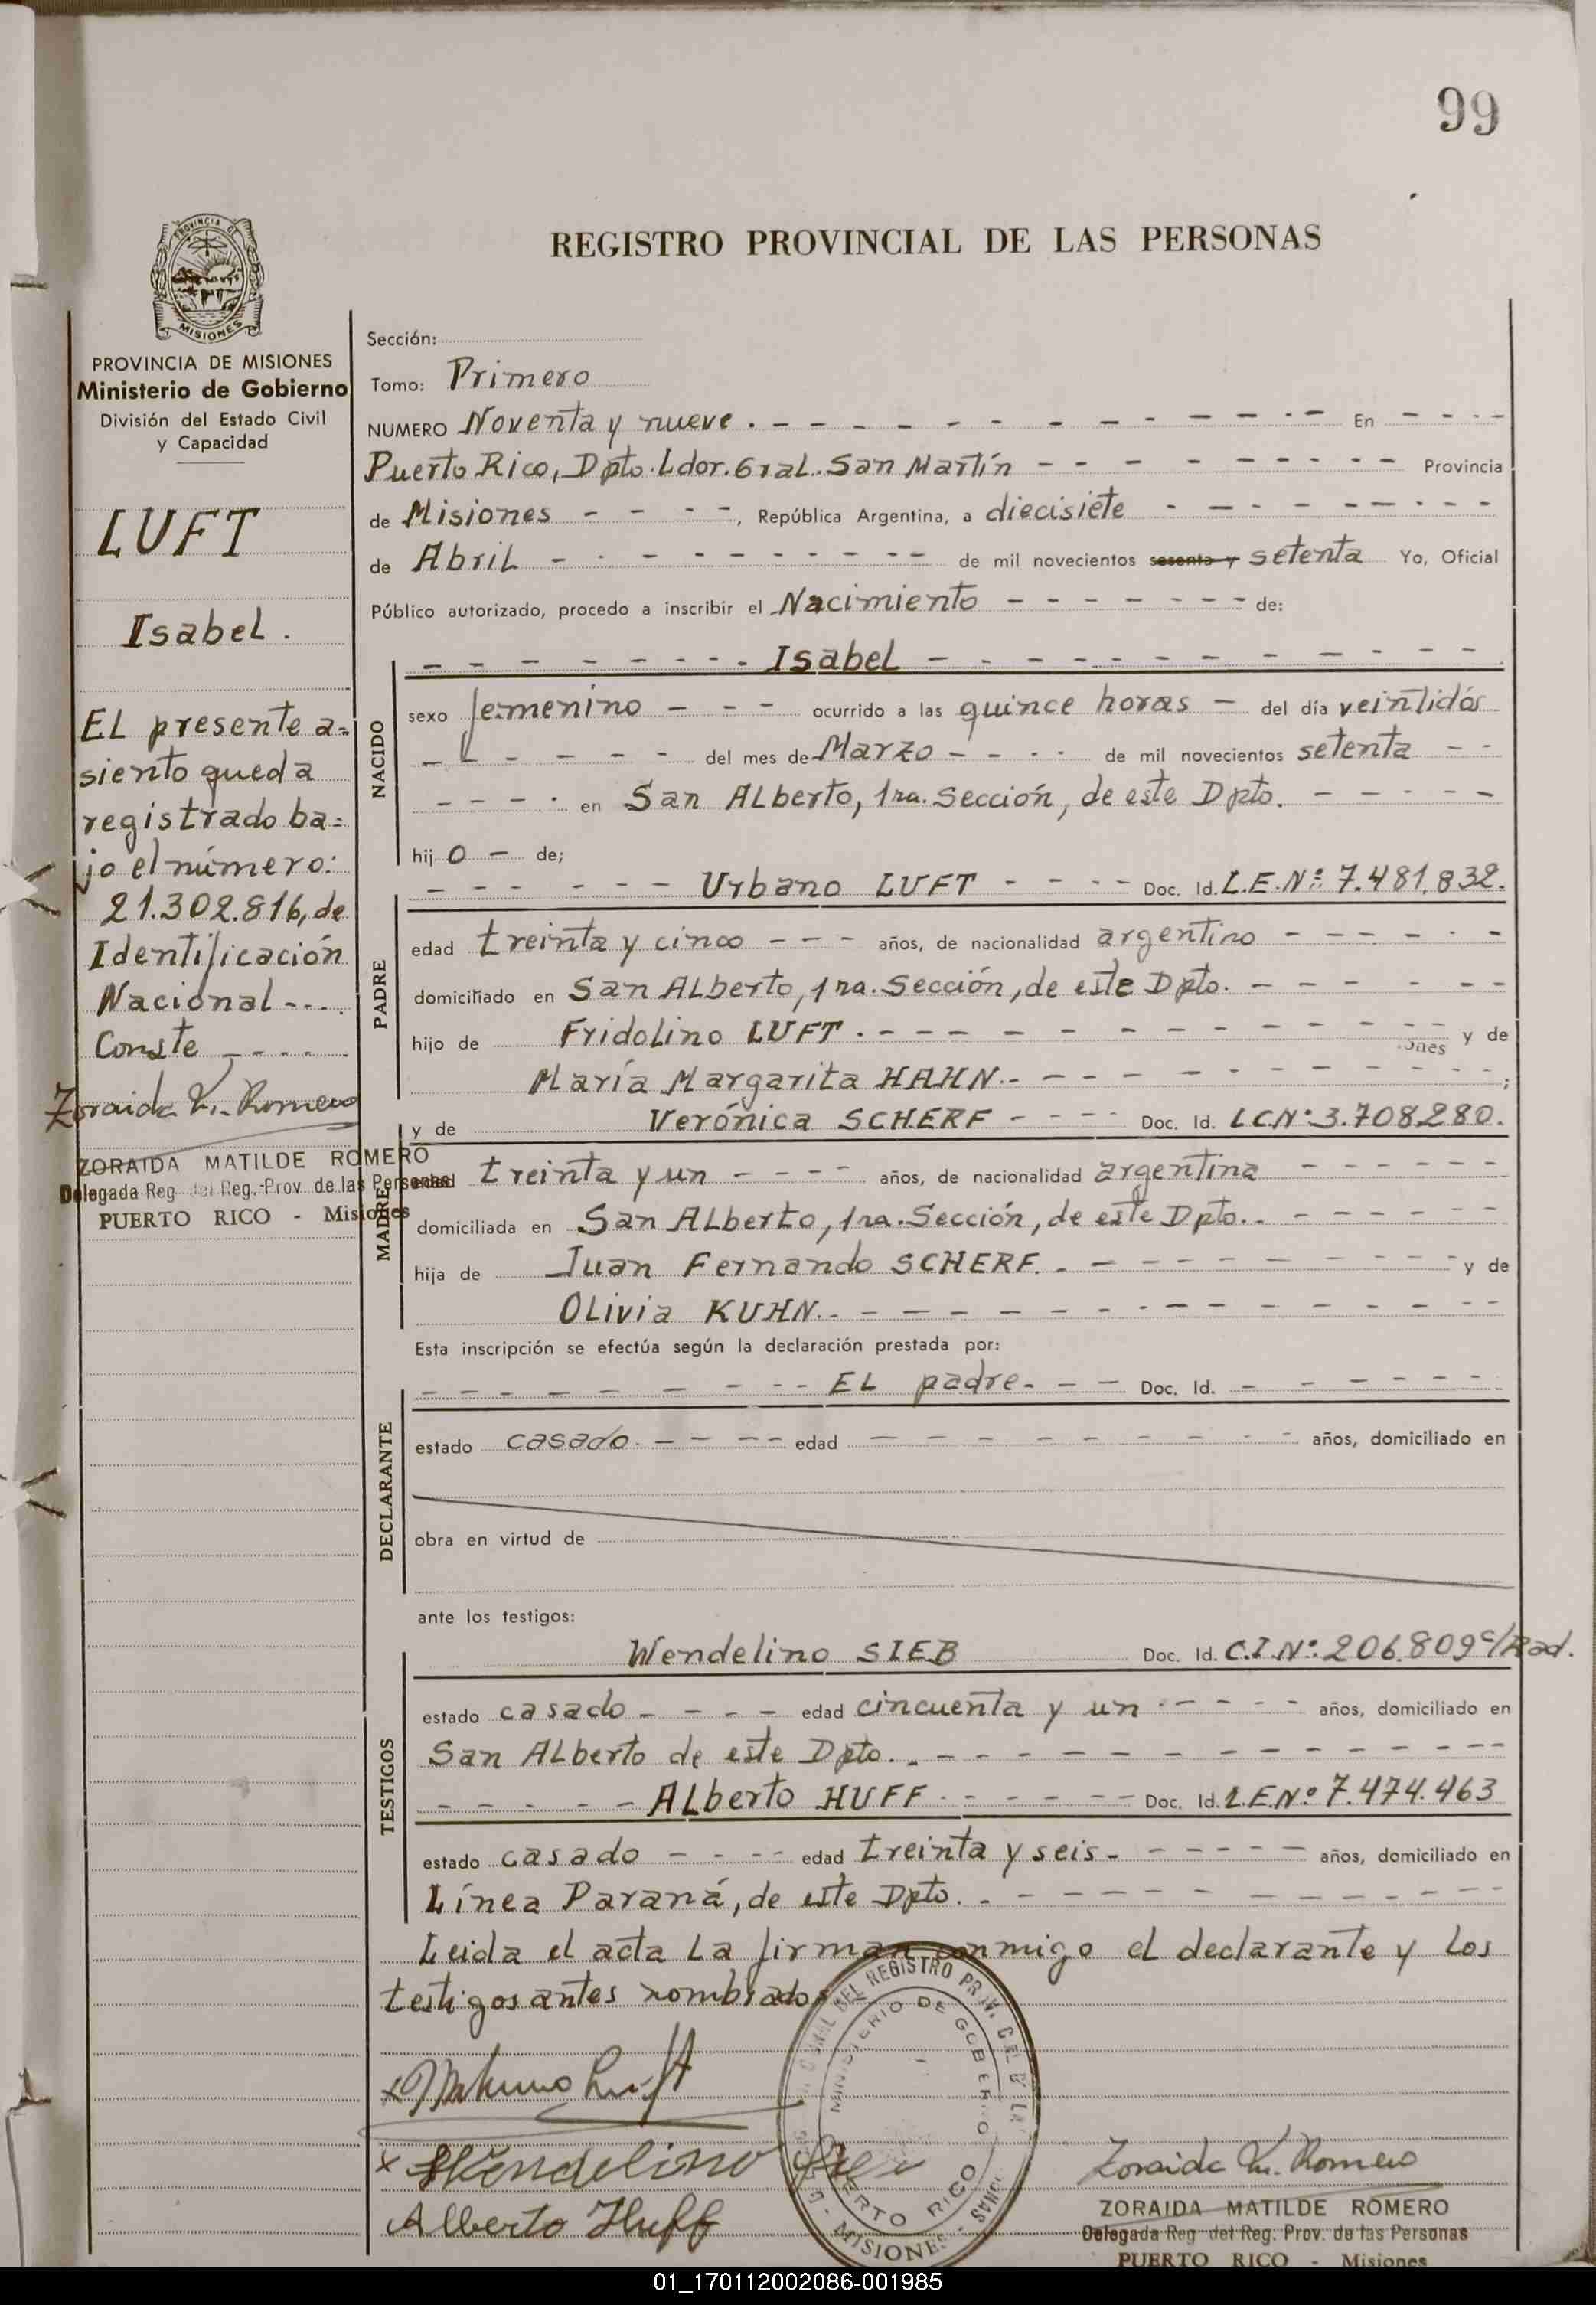 99
REGISTRO PROVINCIAL DE LAS PERSONAS
PROVINCIA DE
MISIONES
PROVINCIA DE MISIONES
Ministerio de Gobierno
División del Estado Civil
y Capacidad
LUFT
Isabel.
El presente a=
siento queda
registrado ba=
jo el número:
21.302.816, de
Identificación
Nacional - - -.
Conste - - - -
Zoraida M. Romero
ZORAIDA MATILDE ROMERO
Delegada Reg del Reg. Prov. de las Personas
PUERTO RICO - Misiones
Sección:
Tomo: Primero
NUMERO Noventa y nueve. - - - - - - - - - - - En - - - -
Puerto Rico, Dpto. Ldor. Gral. San Martín - - - - - - - - - Provincia
de Misiones - - - -, República Argentina, a diecisiete - - - - - - - - -
de Abril - - - - - - - - - - de mil novecientos sesenta y setenta Yo, Oficial
Público autorizado, procedo a inscribir el Nacimiento - - - - - - - de:
- - - - - - - - Isabel - - - - - - - - - - - - -
NACIDO
sexo femenino - - - ocurrido a las quince horas - del día veintidós
- - - - - - del mes de Marzo - - - - de mil novecientos setenta - -
- - - - en San Alberto, 1ra. Sección, de este Dpto. - - - - -
hij o - de;
PADRE
- - - - - - Urbano LUFT - - - - Doc. Id. L.E.Nº: 7.481.832.
edad treinta y cinco - - - años, de nacionalidad argentino - - - - - -
domiciliado en San Alberto, 1ra. Sección, de este Dpto. - - - - - -
hijo de Fridolino LUFT. - - - - - - - - - - - - y de
ones
María Margarita HAHN. - - - - - - - - - - - - ;
MADRE
y de Verónica SCHERF - - - - Doc. Id. L.C.Nº: 3.708.280.
edad treinta y un - - - - años, de nacionalidad argentina - - - - - -
domiciliada en San Alberto, 1ra. Sección, de este Dpto. - - - - - -
hija de Juan Fernando SCHERF. - - - - - - - - - - y de
Olivia KUHN. - - - - - - - - - - - - - - -
Esta inscripción se efectúa según la declaración prestada por:
DECLARANTE
- - - - - - - - - El padre. - - - Doc. Id. - - - - - - -
estado casado. - - - - edad - - - - - - - - - - años, domiciliado en
obra en virtud de
ante los testigos:
TESTIGOS
Wendelino SIEB Doc. Id. C.I.Nº: 206.809 c/Rad.
estado casado - - - - edad cincuenta y un - - - - - años, domiciliado en
San Alberto de este Dpto. - - - - - - - - - - - - - -
- - - - - Alberto HUFF - - - - - - Doc. Id. L.E.Nº 7.474.463
estado casado - - - - edad treinta y seis - - - - - - años, domiciliado en
Línea Paraná, de este Dpto. - - - - - - - - - - - - -
Leida el acta la firman conmigo el declarante y los
testigos antes nombrados
x Luft
x Wendelino
Alberto Huff
DEL REGISTRO
MINISTERIO DE GOBIERNO
PUERTO RICO
- MISIONES -
Zoraida M. Romero
ZORAIDA MATILDE ROMERO
Delegada Reg del Reg. Prov. de las Personas
PUERTO RICO - Misiones
01_170112002086-001985